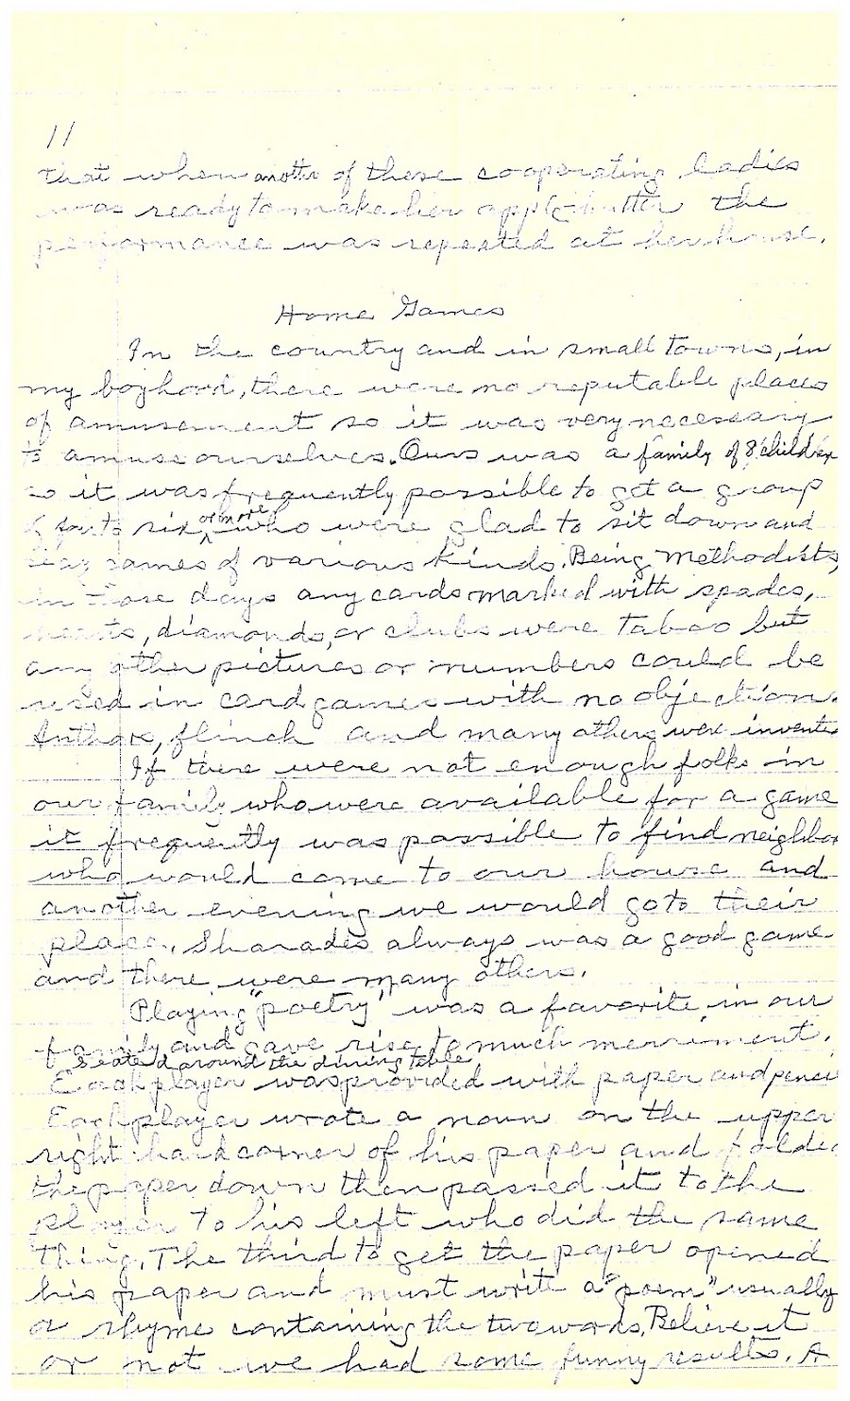 11
that when another of these cooperating ladies
was ready to make her apple butter the
performance was repeated at her house.
Home Games
In the country and in small towns, in
my boyhood, there were no reputable places
of amusement so it was very necessary
to amuse ourselves. Ours was a family of 8 children
so it was frequently possible to get a group
of four to six or more who were glad to sit down and
play games of various kinds. Being Methodists,
in those days any cards marked with spades,
hearts, diamonds, or clubs were taboo but
any other pictures or numbers could be
used in card games with no objection.
Authors, flinch and many others were invente
If there were not enough folks in
our family who were available for a game
it frequently was possible to find neighbor
who would come to our house and
another evening we would go to their
place. Sharades always was a good game
and there were many others.
Playing "poetry" was a favorite in our
family and gave rise to much merriment.
Seated around the dining table
Each player was provided with paper and penci
Each player wrote a noun on the upper
right hand corner of his paper and folde
the paper down then passed it to the
player to his left who did the same
thing. The third to get the paper opened
his paper and must write a "poem" usually
a rhyme containing the two words. Believe it
or not we had some funny results. A